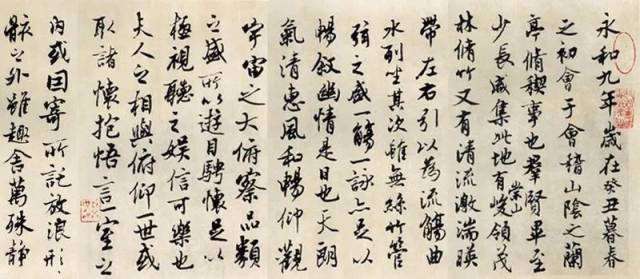 永和九年歲在癸丑暮春
之初會于會稽山陰之蘭
亭脩稧事也羣賢畢至
少長咸集此地有崇山峻領茂
林脩竹又有清流激湍暎
帶左右引以為流觴曲
水列坐其次雖無絲竹管
弦之盛一觴一詠亦足以
暢敘幽情是日也天朗
氣清惠風和暢仰觀
宇宙之大俯察品類
之盛所以遊目騁懷足以
極視聽之娛信可樂也
夫人之相與俯仰一世或
取諸懷抱悟言一室之
內或因寄所託放浪形
骸之外雖趣舍萬殊靜